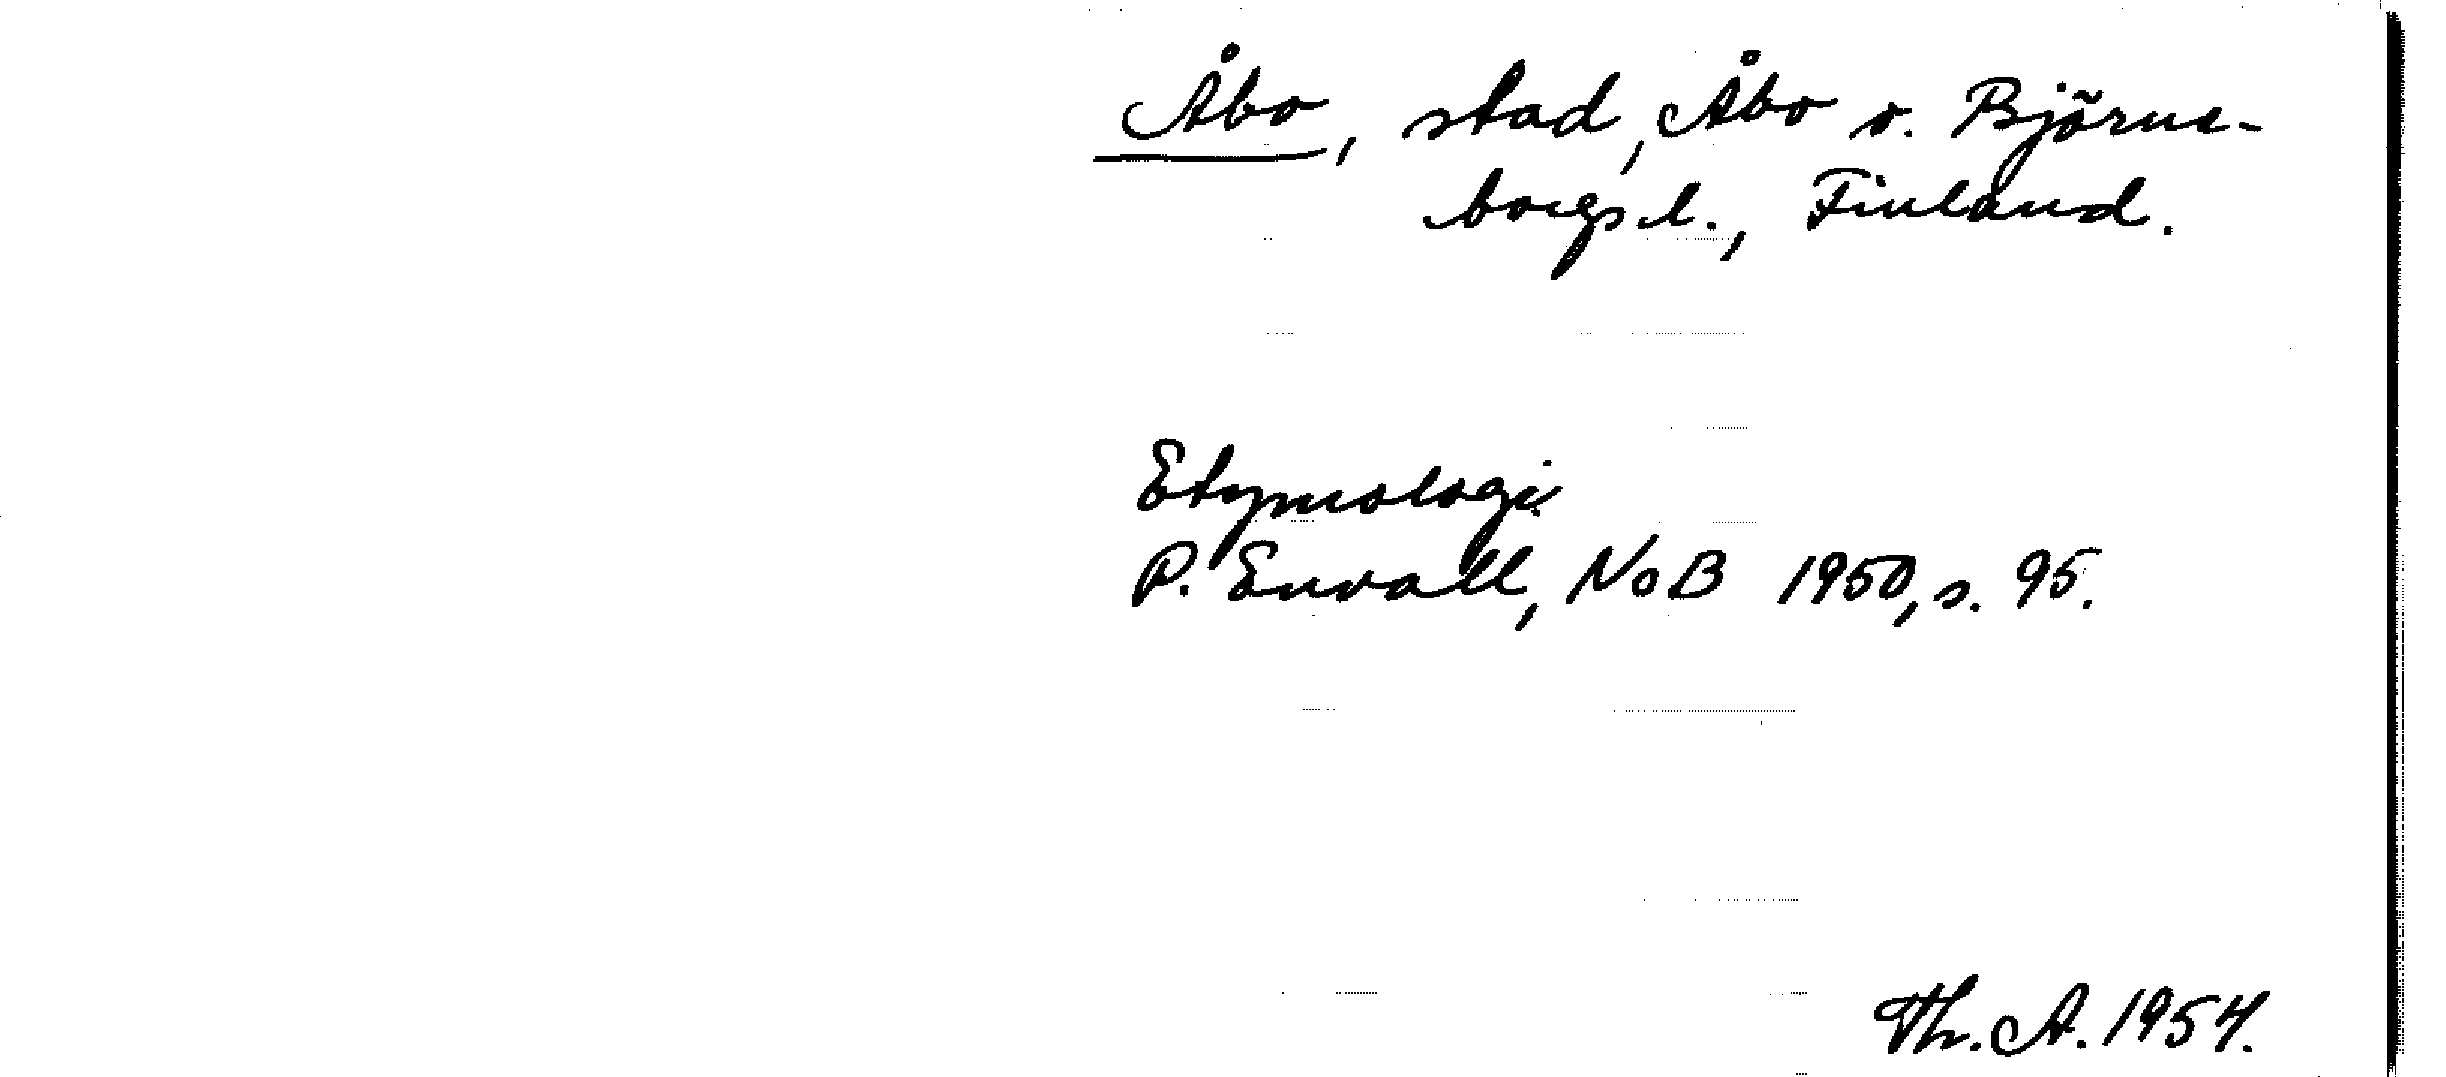 Åbo, stad, Åbo o. Björne-
borgs l., Finland.
Etymologi
P. Envall, NoB 1950, s. 95.
Th. A. 1954.